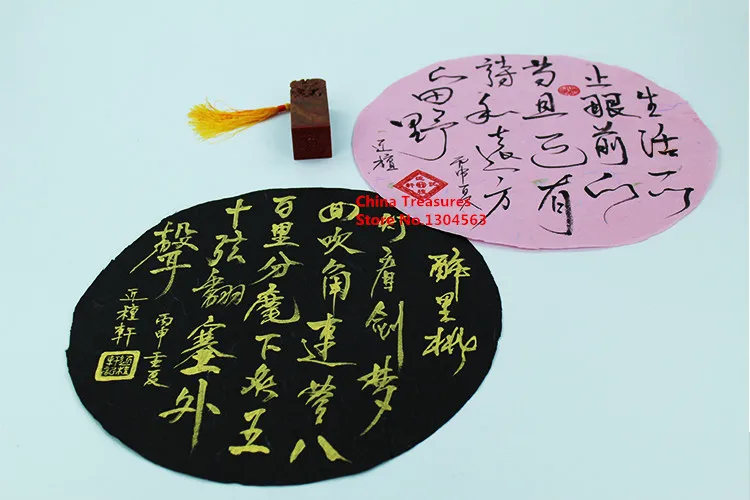 生活不
止眼前的
苟且还有
詩和遠方
的田野
丙申夏
近檀
China Treasures
Store No.1304563
醉里挑
灯看剑梦
回吹角連营八
百里分麾下炙五
十弦翻塞外
聲
丙申重夏
近檀軒